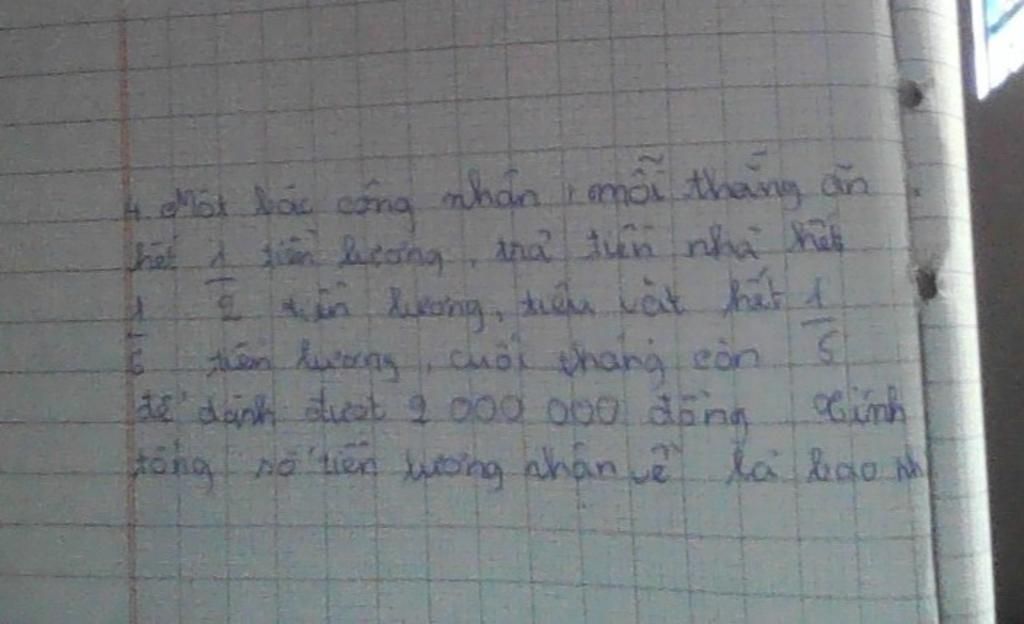 4. Một bác công nhân, mỗi tháng ăn
hết 1/2 tiền lương, trả tiền nhà hết
1/6 tiền lương, tiêu vặt hết 1/5
tiền lương, cuối tháng còn
để dành được 2 000 000 đồng Tính
tổng số tiền lương nhận về là bao nh